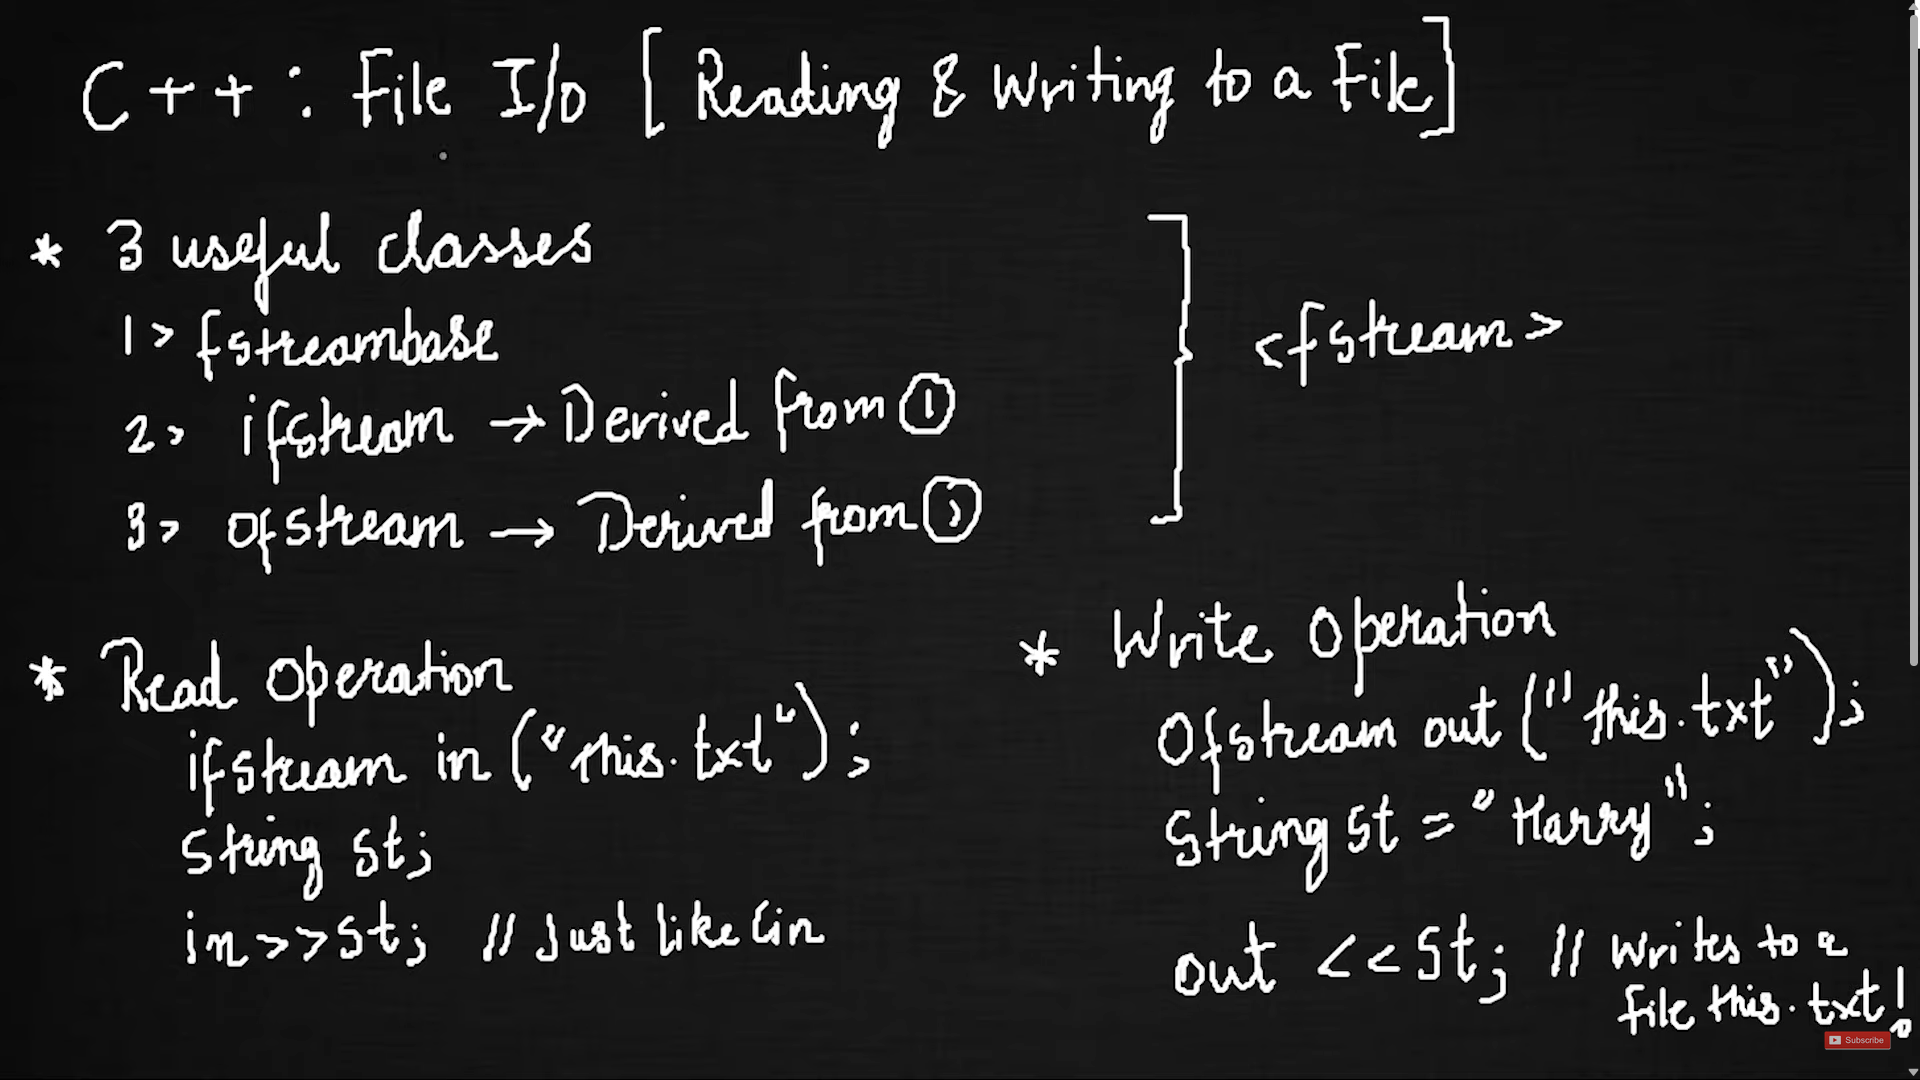 C++ : File I/O [Reading & Writing to a File]
* 3 useful classes
1> fstreambase
2> ifstream → Derived from ①
3> ofstream → Derived from ①
<fstream>
* Read Operation
ifstream in ("this.txt");
string st;
in>>st; // Just like Cin
* Write Operation
Ofstream out ("this.txt");
String st = "Harry";
out <<st; // Writes to a
file this.txt!
Subscribe